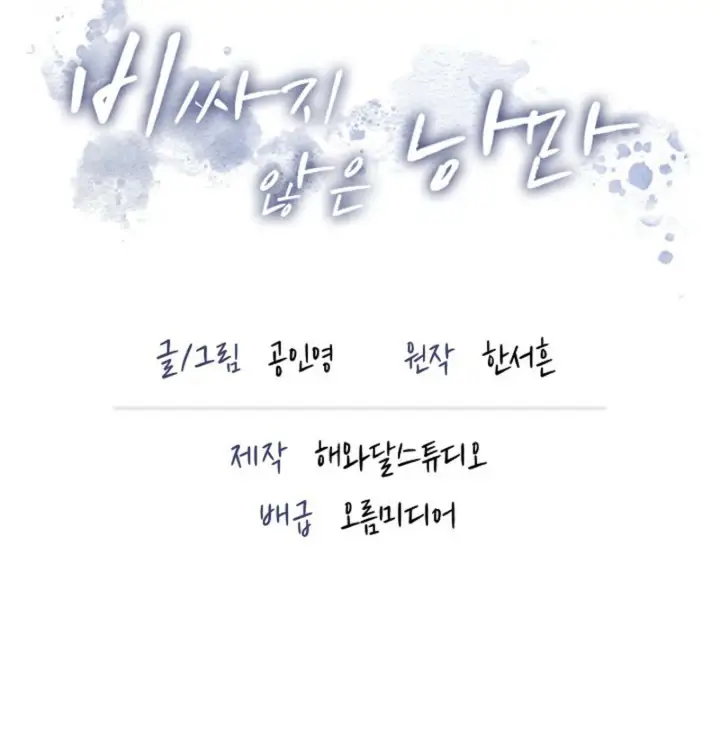 비싸지
않은 낭만
글/그림 공인영 원작 한서흔
제작 해와달스튜디오
배급 오름미디어